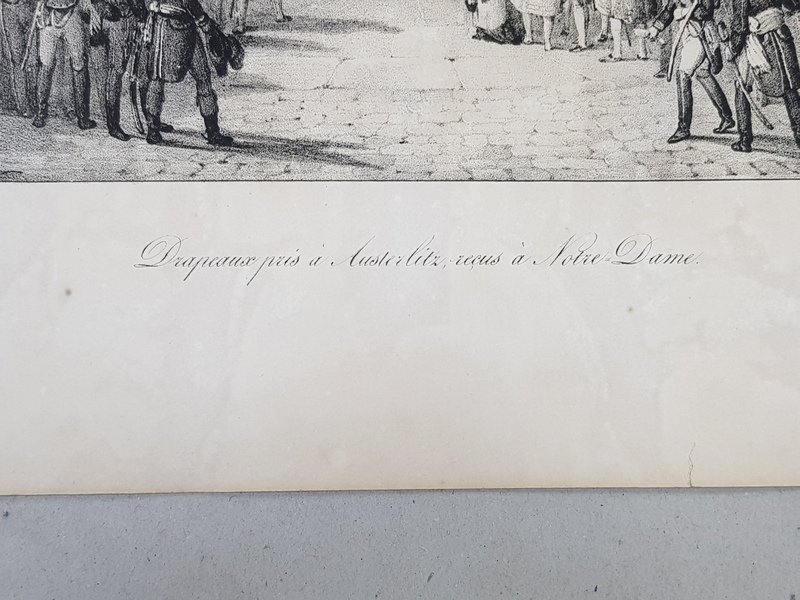 Drapeaux pris à Austerlitz, reçus à Notre-Dame.